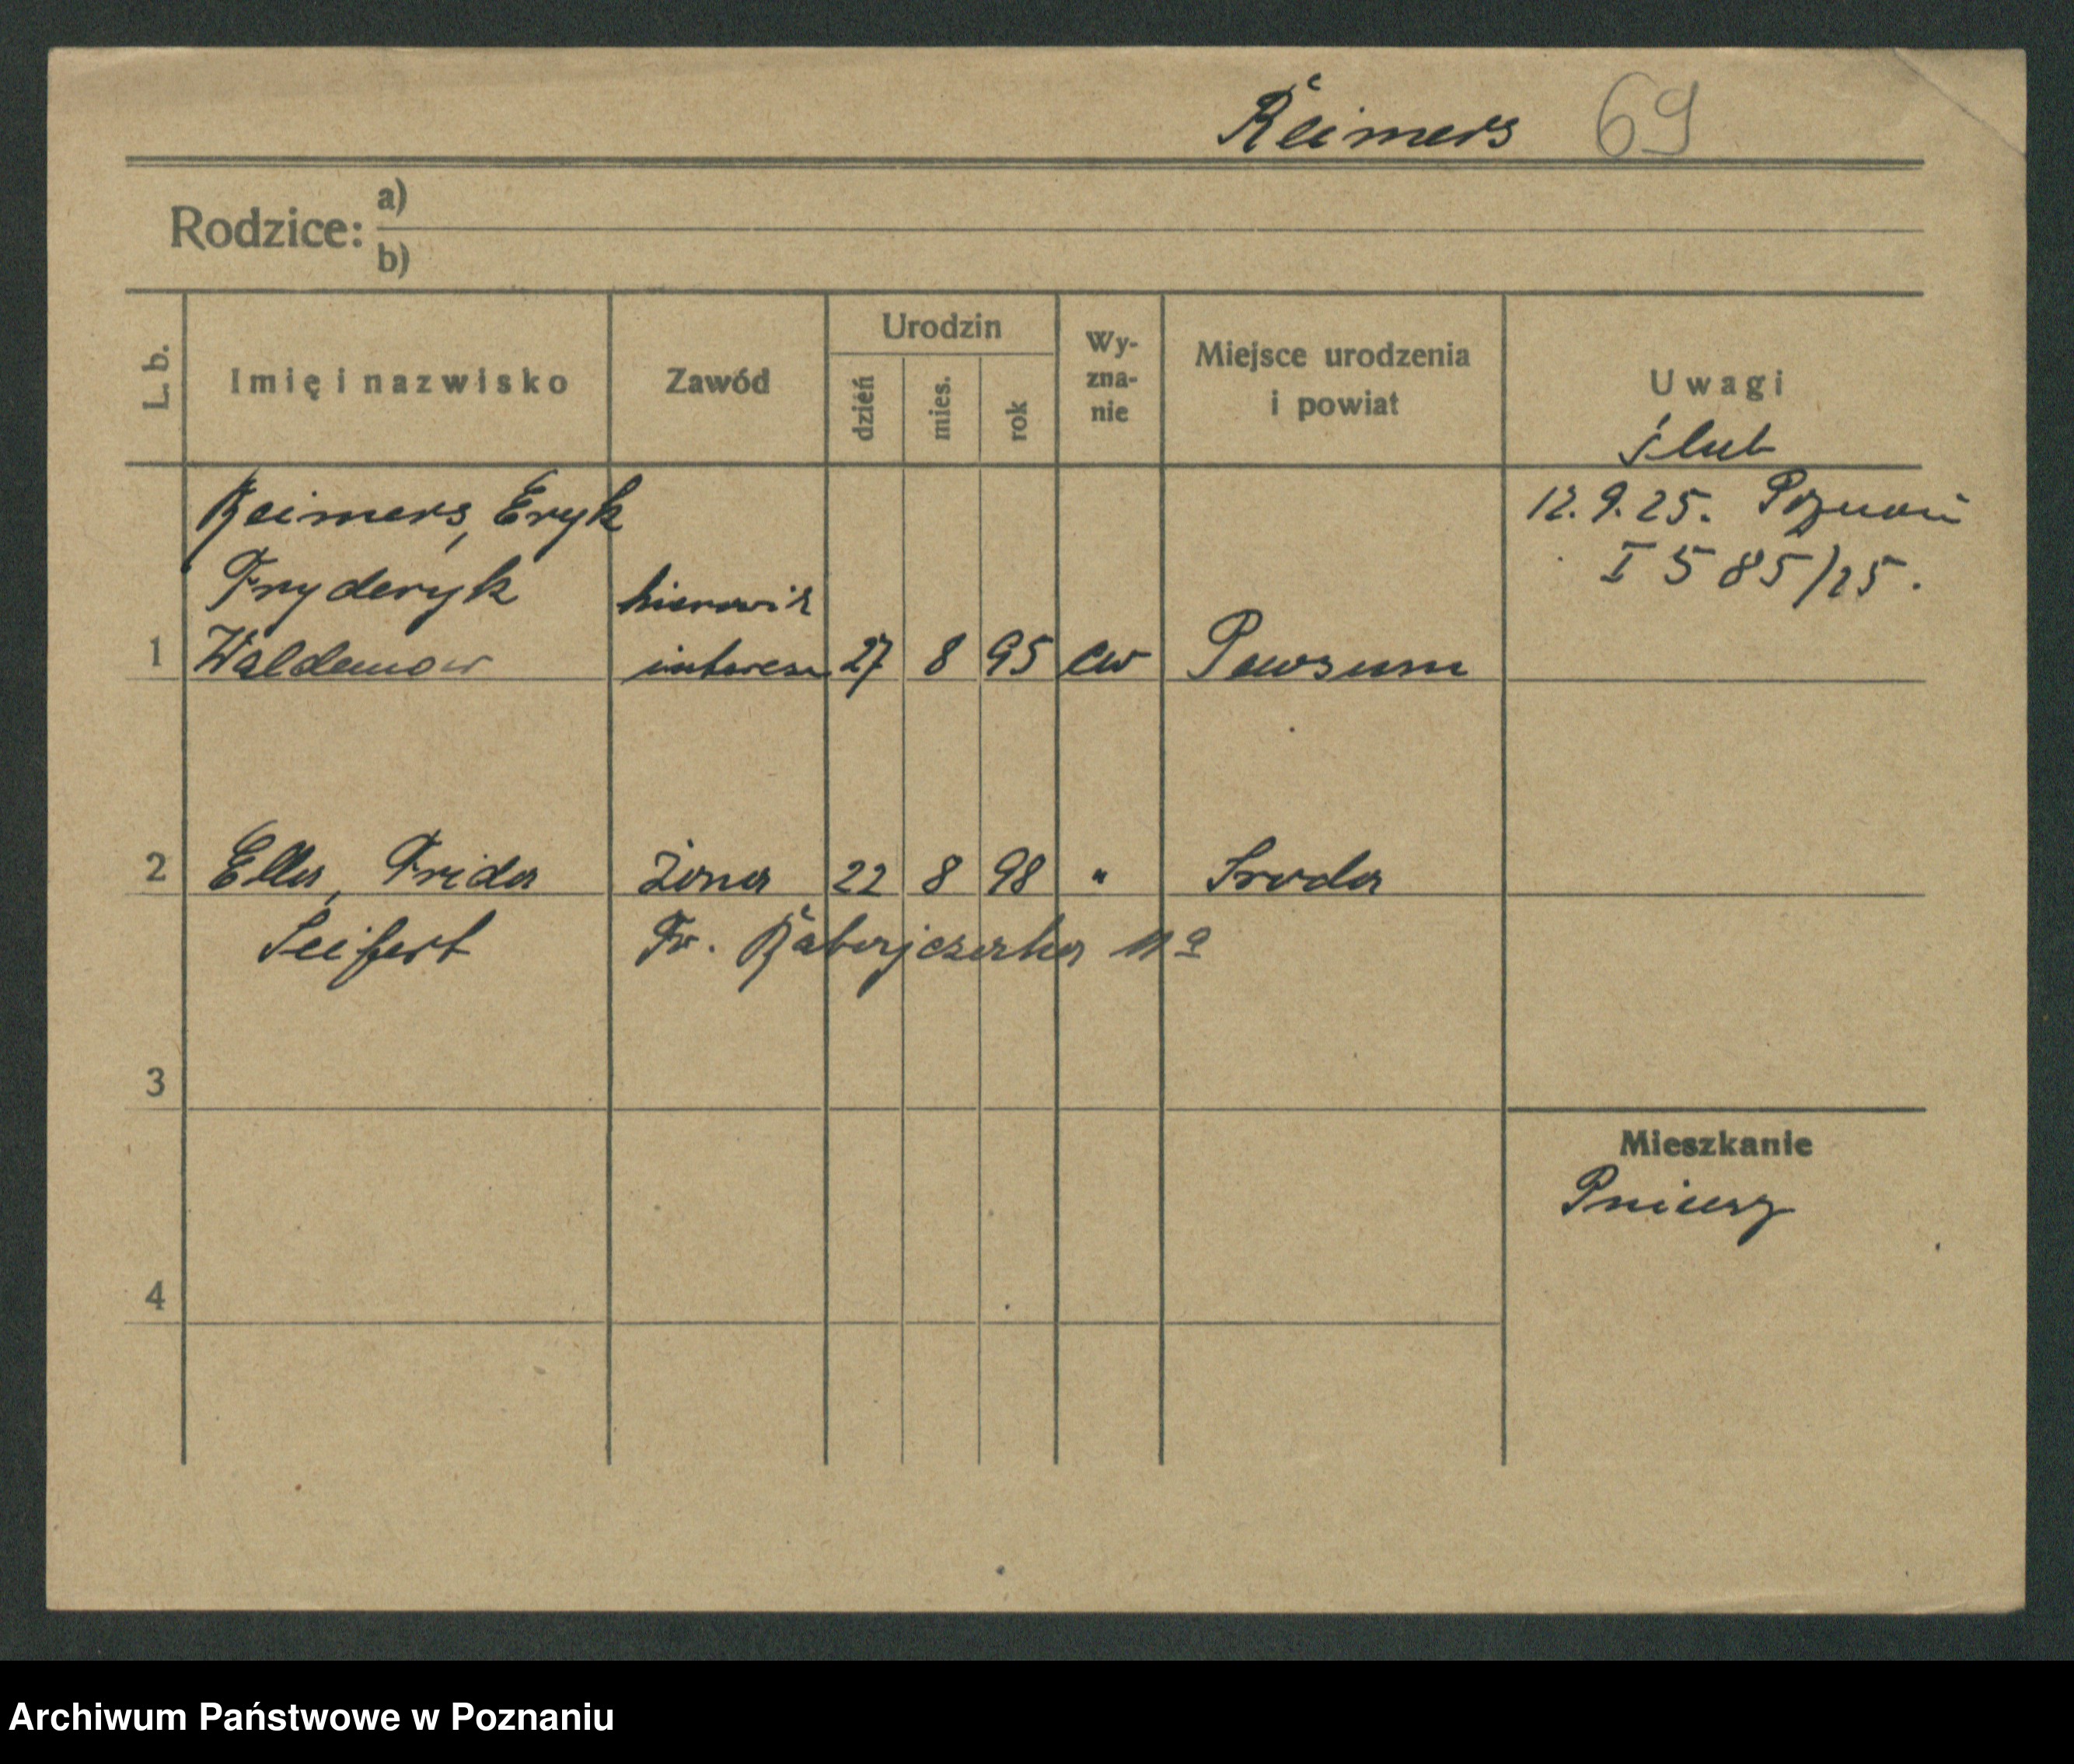 Reimers 69
Rodzice:
a)
b)
L. b.
Imię i nazwisko
Zawód
Urodzin
dzień
mies.
rok
Wy-
zna-
nie
Miejsce urodzenia
i powiat
Uwagi
ślub
Reimers, Eryk
Fryderyk
1 Waldemar
kierownik
interesu 27 8 95 ew Pewsum
12.9.25. Poznań
I 585/25.
2 Ella, Frida żona 22 8 98 " Sroda
Seifert
Fr. 11a
3
Mieszkanie
4
Archiwum Państwowe w Poznaniu